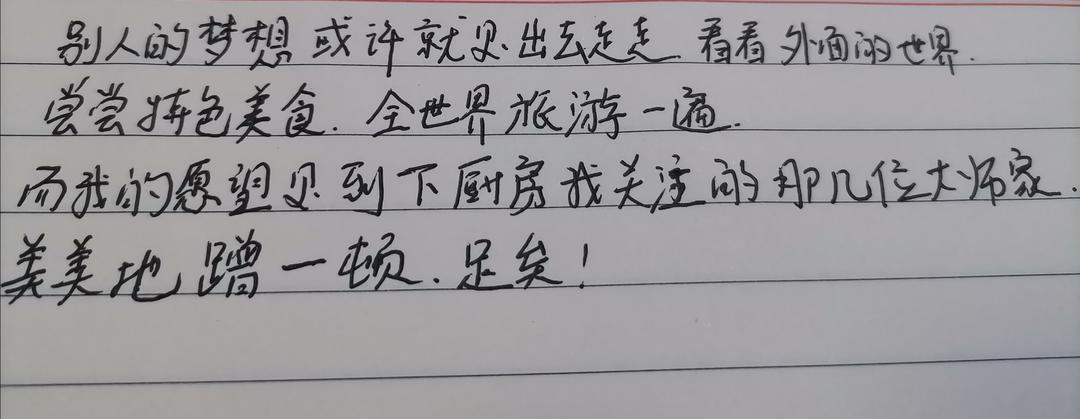 别人的梦想或许就是出去走走.看看外面的世界.
尝尝特色美食.全世界旅游一遍.
而我的愿望是到下厨房我关注的那几位大师家.
美美地蹭一顿.足矣!